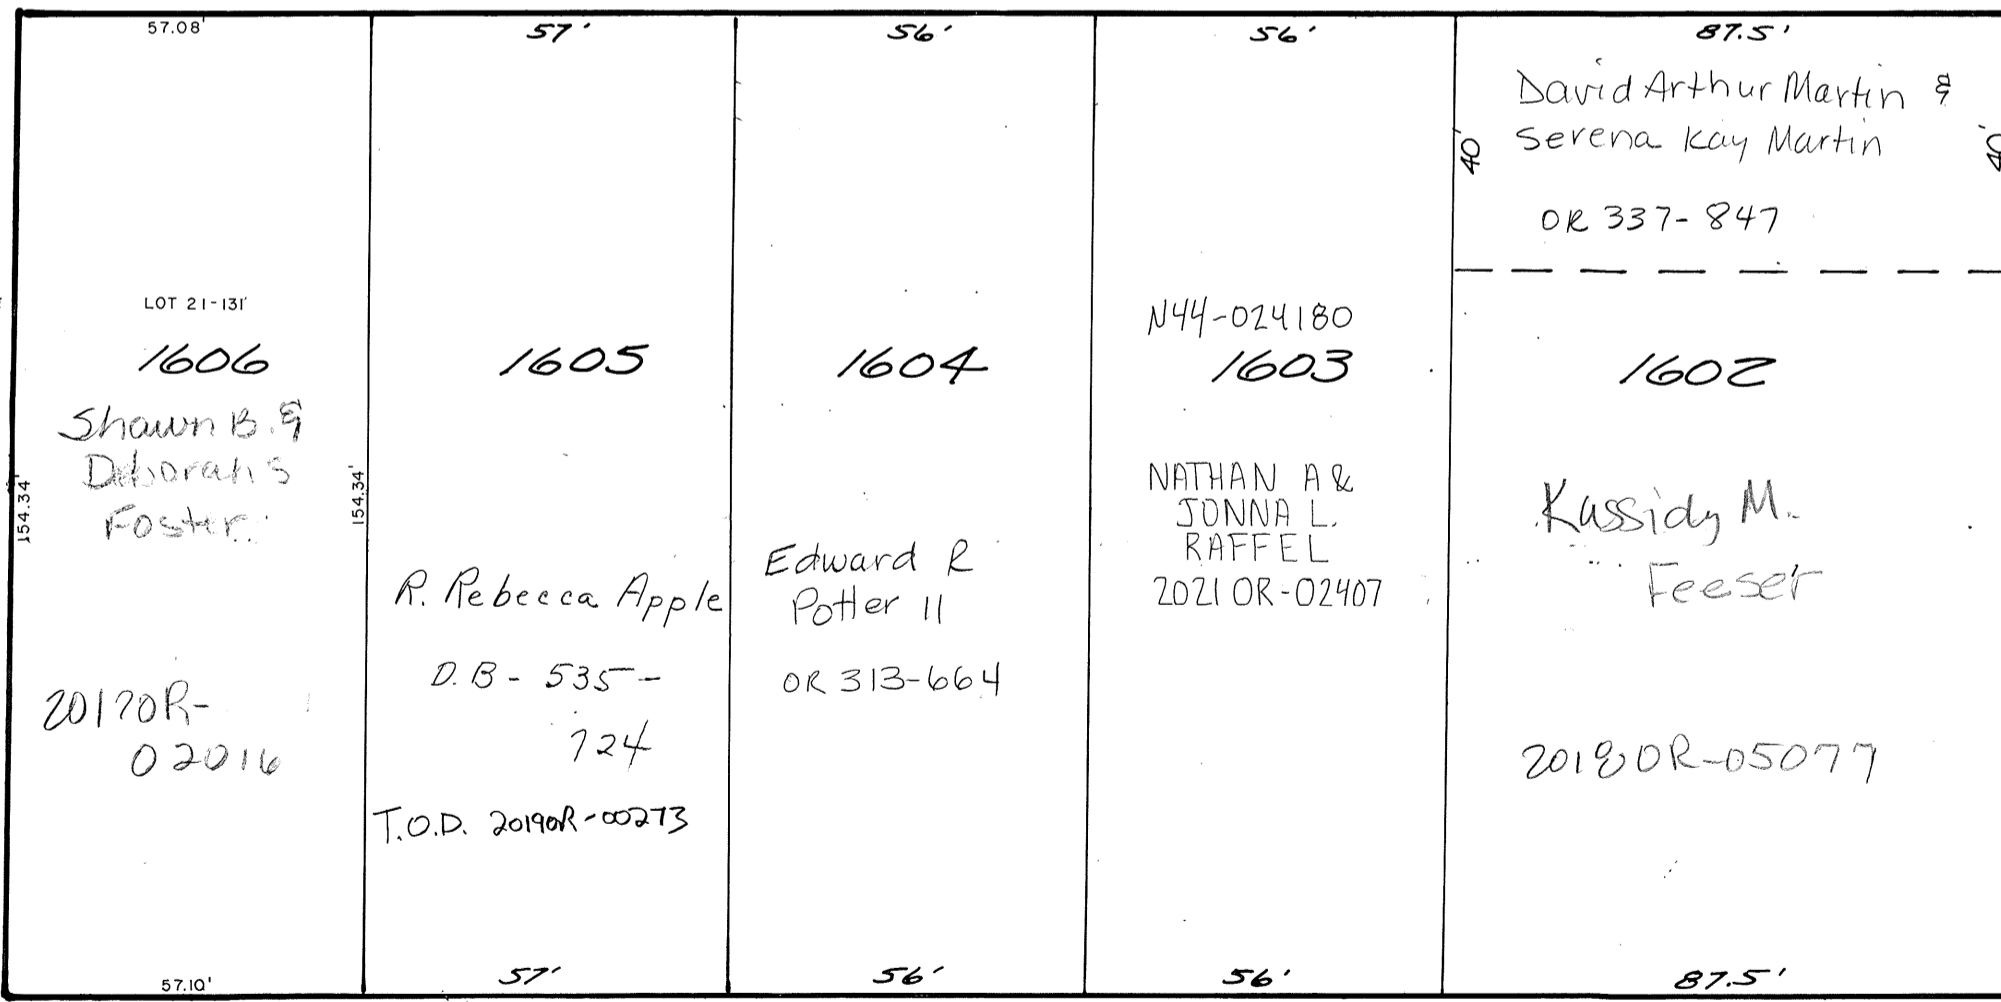 57.08'
LOT 21-131'
1606
Shawn B. &
Deborah S
Foster
154.34'
154.34'
2017OR-
02016
57.10'
57'
1605
R. Rebecca Apple
D.B - 535-
724
T.O.D. 2019OR-00273
57'
56'
1604
Edward R
Potter II
OR 313-664
56'
56'
N44-024180
1603
NATHAN A &
JONNA L.
RAFFEL
2021 OR-02407
56'
87.5'
David Arthur Martin &
Serena Kay Martin
40'
OR 337-847
1602
Kassidy M.
Feeser
2018OR-05077
87.5'